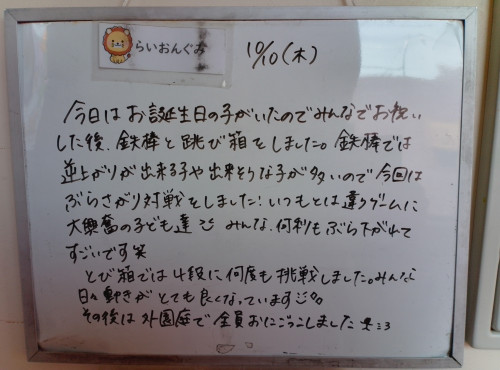 らいおんぐみ
10/10(木)
今日はお誕生日の子がいたのでみんなでお祝い
した後、鉄棒と跳び箱をしました。鉄棒では
逆上がりが出来る子や出来そうな子が多いので今回は
ぶらさがり対戦をしました!いつもとは違うゲームに
大興奮の子ども達 みんな、何秒もぶら下がれて
すごいです笑
とび箱では4段に何度も挑戦しました。みんな
日々動きがとても良くなっています
その後は外園庭で全員おにごっこしました